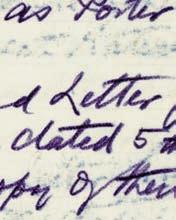 as Porter
d Letter
dated 5th
opy of them